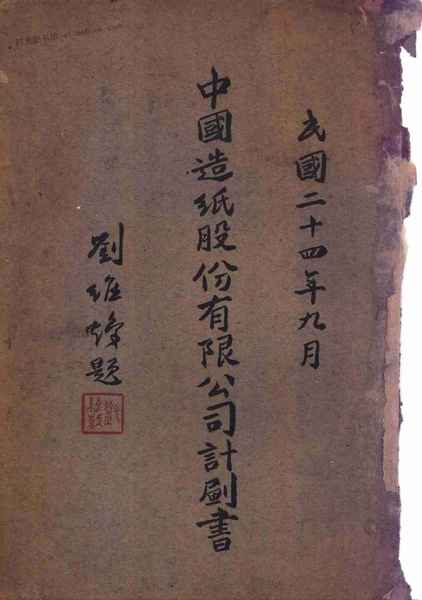 民國二十四年九月
中國造紙股份有限公司計劃書
劉維題